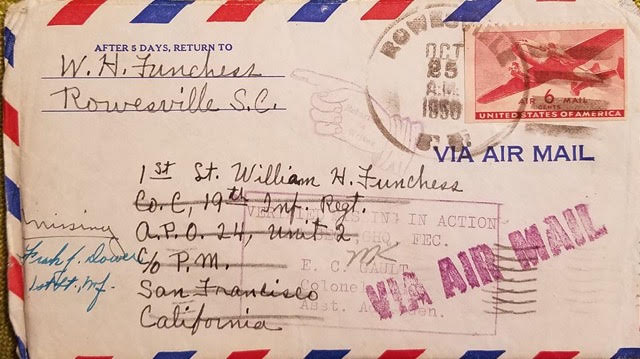 AFTER 5 DAYS, RETURN TO
W. H. Funchess
Rowesville S.C.
ROWESVILLE
OCT
25
A.M.
1950
AIR 6 MAIL
CENTS
UNITED STATES OF AMERICA
VIA AIR MAIL
1st St. William H. Funchess
Co. C, 19th Inf. Regt.
A.P.O. 24, Unit 2
c/o P.M.
San Francisco
California
missing
1st Lt, Inf.
VERIFIED MISSING IN ACTION
GHQ FEC.
E. C. GAULT
Colonel
Asst. Gen.
VIA AIR MAIL